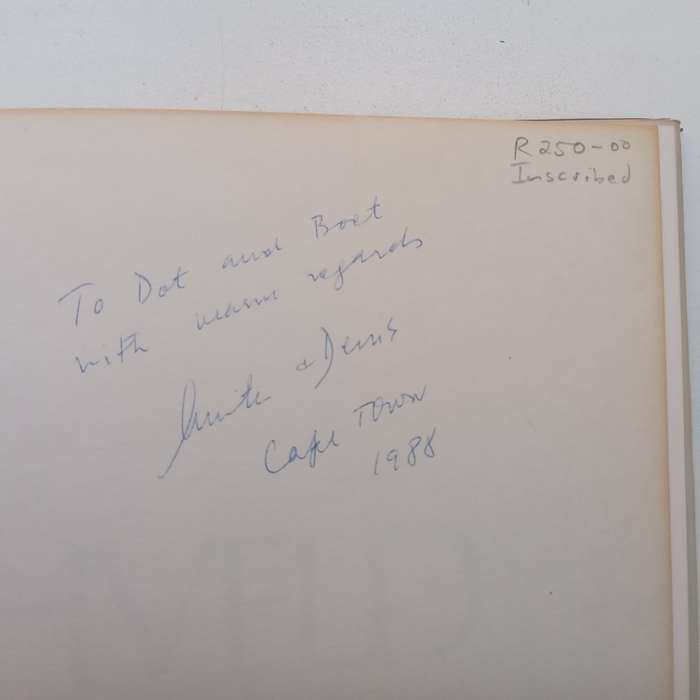 R 250-00
Inscribed
To Dot and Boet
with warm regards
& Denis
Cape Town
1988